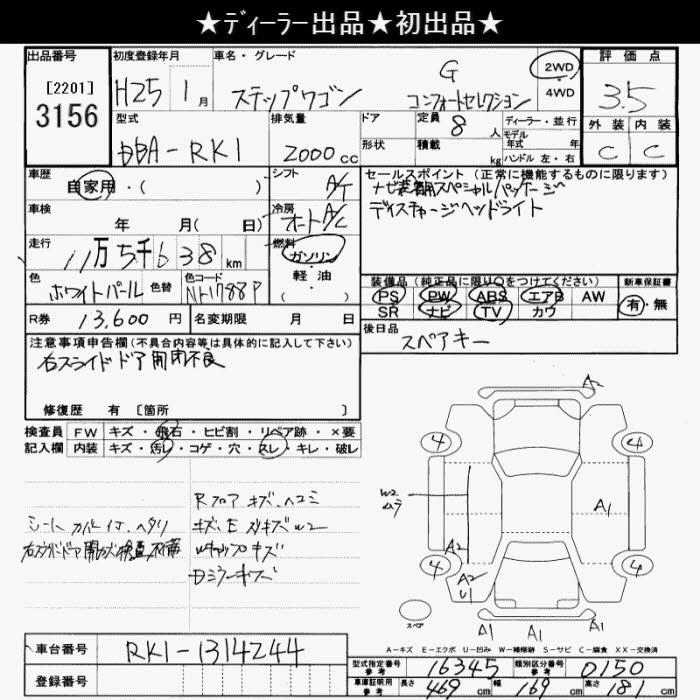 ★ディーラー出品★初出品★
出品番号 初度登録年月 車名・グレード 評価点
[2201]
3156
H25 1月 ステップワゴン G コンフォートセレクション 2WD 4WD 3.5
外装 内装
C C
型式 排気量 ドア 定員 ディーラー・並行
DBA-RK1 2000cc 8人
モデル年式 年
形状 積載 kg ハンドル 左・右
車歴 シフト セールスポイント(正常に機能するものに限ります)
自家用・( ) A/T
ナビ装着用スペシャルパッケージ
車検 冷房 ディスチャージヘッドライト
年 月( 日) オートA/C
走行 燃料
11万5千638km ガソリン・軽・油・( )
色 色替 色コード 装備品(純正品に限り○をつけてください) 新車保証書
ホワイトパール NH788P
PS PW ABS エアB AW 有・無
SR ナビ TV カワ
R券 13,600円 名変期限 月 日 後日品
スペアキー
注意事項申告欄(不具合内容等は具体的に記入して下さい)
右スライドドア開閉不良
修復歴 有 [箇所 ]
検査員 FW キズ・飛石・ヒビ割・リペア跡・×要
記入欄 内装 キズ・汚レ・コゲ・穴・スレ・キレ・破レ
Rフロアキズ、ヘコミ
シートカバー付、ヘタリ
A2
4 4
W2
ムラ
A1
A2
4 4
A2
U1
スペア
A1 A1
A-キズ E-エクボ U-凹み W-補修跡 S-サビ C-腐食 XX-交換済
車台番号 RK1-1314244
登録番号
型式指定番号 参考 16345 類別区分番号 参考 0150
車庫証明用 参考 長さ 469cm 幅 169cm 高さ 181cm